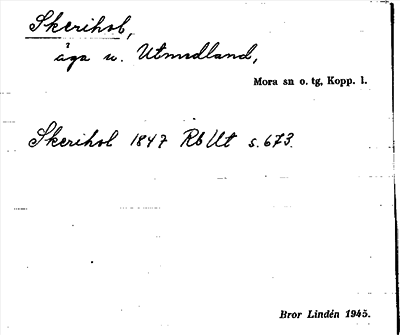 Skerihol,
äga u. Utmedland,
Mora sn o. tg, Kopp. l.
Skerihol 1847 RbUt s. 673.
Bror Lindén 1945.